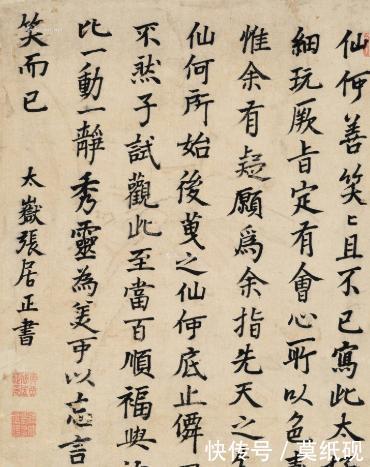 仙何善笑〻且不已寫此太
細玩厥旨定有會心所以色
惟余有疑願爲余指先天之
仙何所始後莫之仙何底止僊
不然子試觀此至當百順福與
比一動一靜秀靈為美可以忘言
笑而已
太嶽張居正書
快传号/莫纸砚